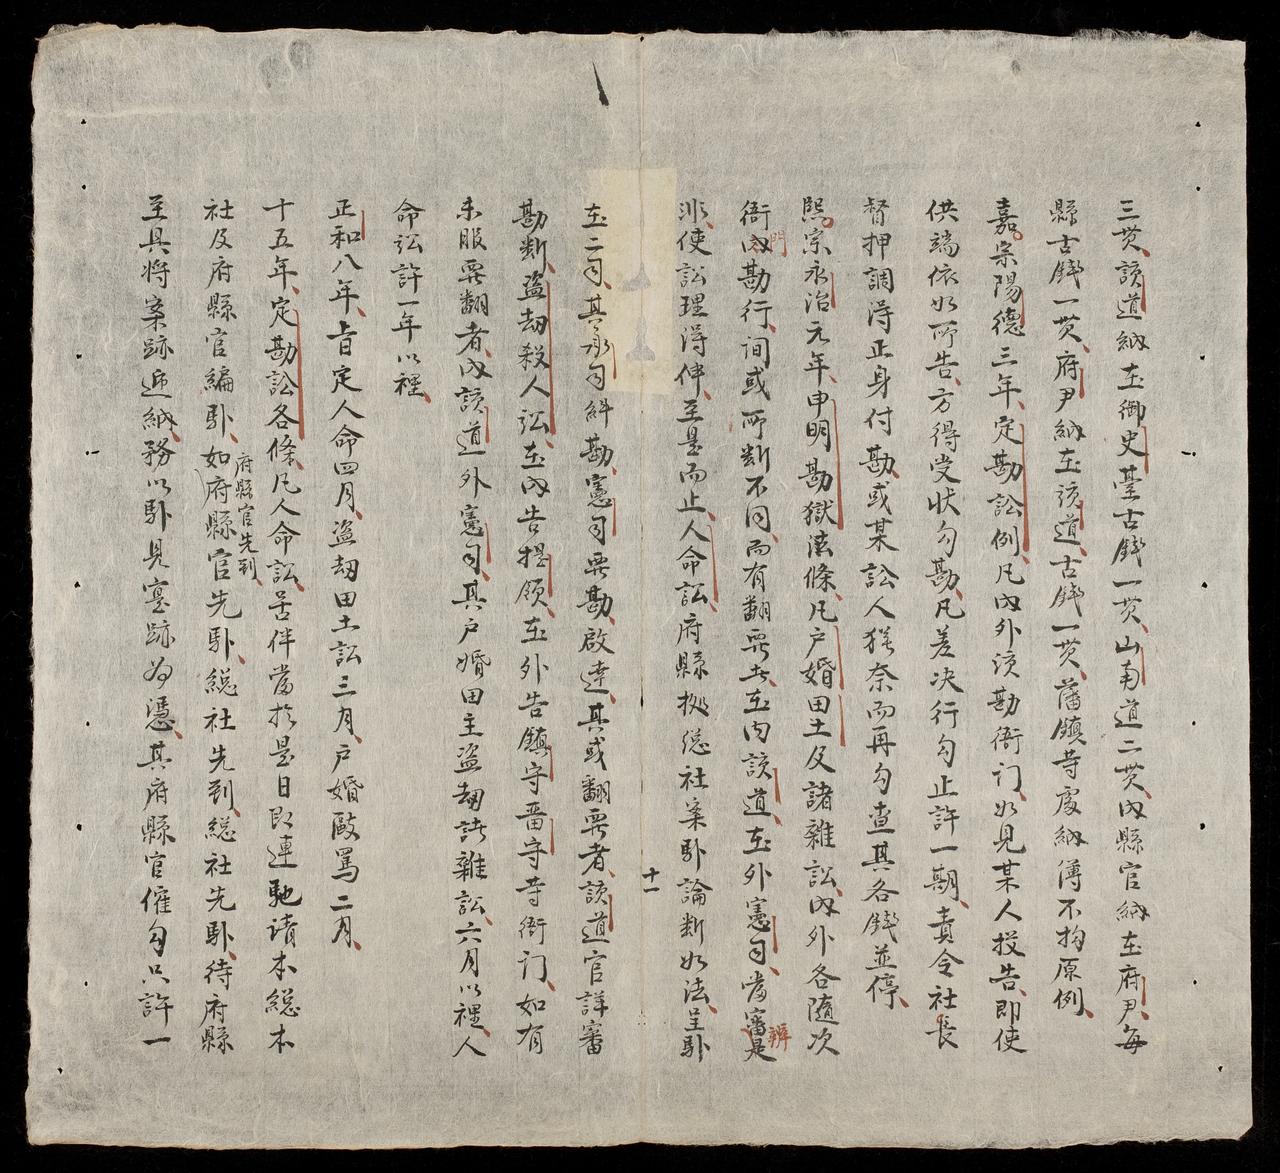 三貫該道納在御史臺古錢一貫山南道二貫內縣官納在府尹每
縣古錢一貫府尹納在該道古錢一貫藩鎮等處納簿不拘原例
嘉宗陽德三年定勘訟例凡內外該勘衙門如見某人投告即使
供端依如所告方得受状勾勘凡差決行勾止許一期責令社長
督押調得正身付勘或某訟人猱奈而再勾查其各錢並停
熙宗永治元年申明勘獄法條凡户婚田土及諸雜訟內外各隨次
衙門勘行间或所断不同而有翻要者在內該道在外憲司當審辨是
非使訟理得伸至是而止人命訟府縣挀總社案馸論断如法呈馸
在二司其承司糾勘憲司要勘啟達其或翻要者該道官詳審
勘断盗劫殺人訟在內告提領在外告鎮守畱守等衙门如有
未服要翻者內該道外憲司其户婚田土盗劫諸雜訟六月以裡人
命訟許一年以裡
正和八年旨定人命四月盗劫田土訟三月户婚毆罵二月
十五年定勘訟各條凡人命訟苦伴當於是日即連馳請本總本
社及府縣官編馸如府縣官先馸総社先到総社先馸待府縣
府縣官先到
至具将案跡逓納務以馸見寔跡為憑其府縣官催勾只許一
十一